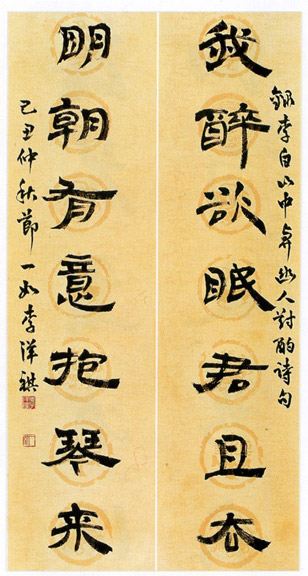 録李白山中與幽人對酌詩句
我醉欲眠君且去
明朝有意抱琴来
己丑仲秋節一如李洋祺